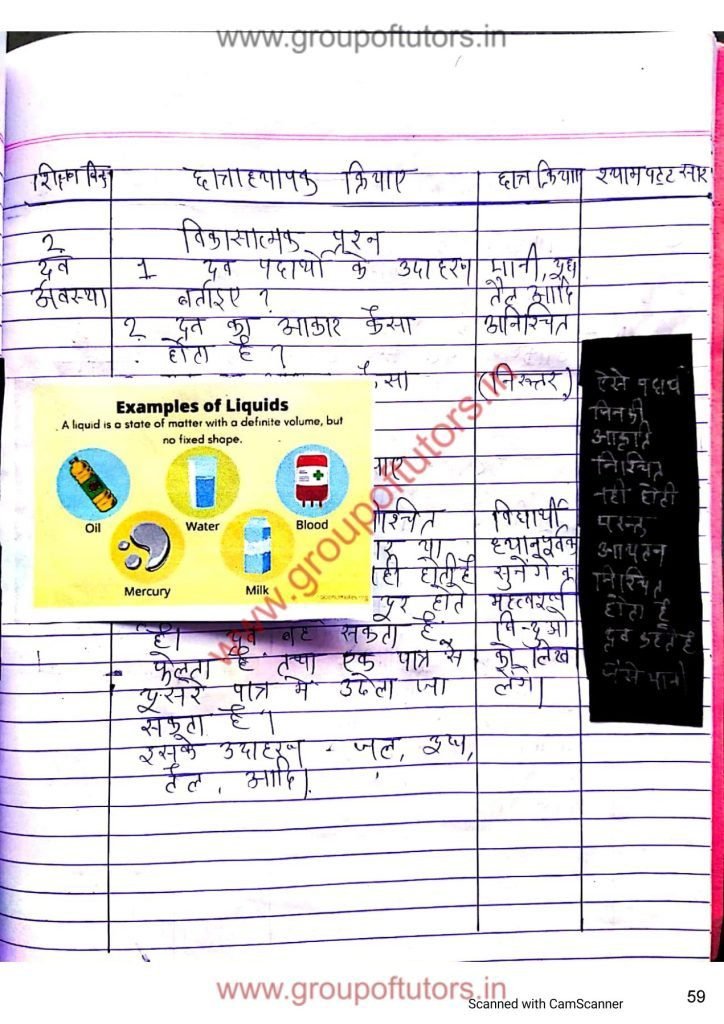 www.groupoftutors.in
शिक्षण बिन्दु छात्राध्यापक क्रियाएं छात्र क्रियाएं श्यामपट्ट सार
2 विकासात्मक प्रश्न
द्रव 1 द्रव पदार्थो के उदाहरण पानी, दूध
अवस्था बताइए ? तैल आदि
2 द्रव का आकार कैसा अनिश्चित
होता है ?
कैसा (निरुत्तर)
Examples of Liquids
A liquid is a state of matter with a definite volume, but
no fixed shape.
Oil Water Blood
Mercury Milk
विद्यार्थी
या ध्यानपूर्वक
होती है सुनेंगे व
दूर होते महत्वपूर्ण
है। द्रव बह सकता है, बिन्दुओ
फैलता है तथा एक पात्र से को लिख
दूसरे पात्र में उढेला जा लेंगे।
सकता है।
इसके उदाहरण - जल, दूध,
तैल, आदि।
ऐसे पदार्थ
जिनकी
आकृति
निश्चित
नही होती
परन्तु
आयतन
निश्चित
होता है
द्रव कहते है
जैसे पानी
www.groupoftutors.in
www.groupoftutors.in
Scanned with CamScanner
59